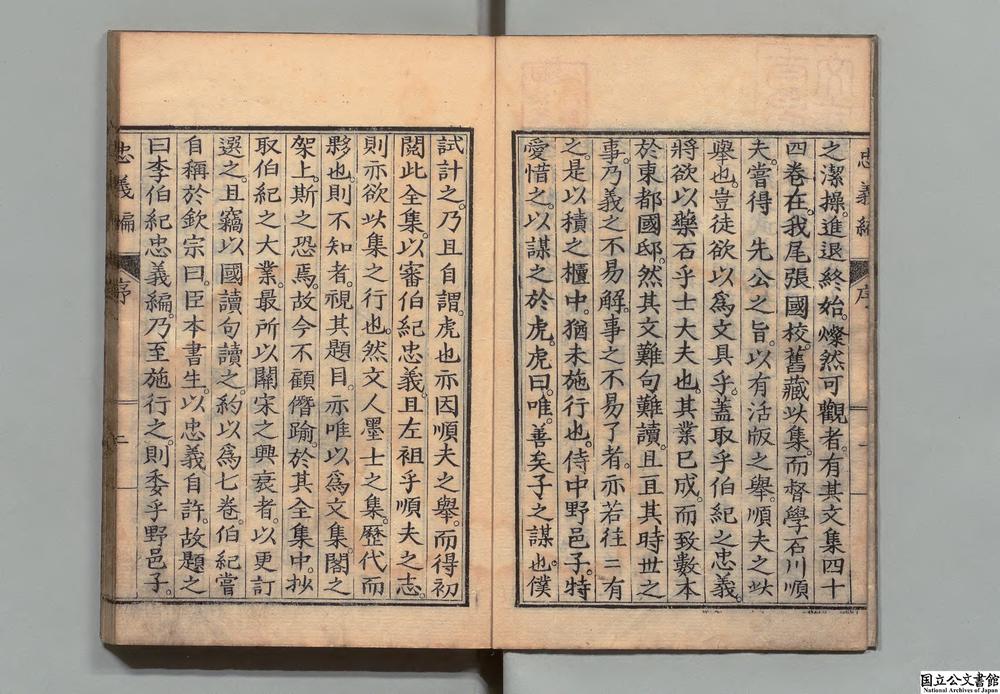 之潔操。進退終始。燦然可觀者。有其文集四十
四卷在。我尾張國校。舊藏此集。而督學石川順
夫。嘗得　先公之旨。以有活版之舉。順夫之此
舉也。豈徒欲以爲文具乎。蓋取乎伯紀之忠義。
將欲以藥石乎士大夫也。其業已成。而致數本
於東都國邸。然其文難句難讀。且亘其時世之
事。乃義之不易解。事之不易了者。亦若往々有
之。是以積之櫃中。猶未施行也。侍中野邑子。特
愛惜之。以謀之於虎。虎曰。唯。善矣子之謀也。僕
忠義編
序
試計之。乃且自謂。虎也亦因順夫之舉。而得初
閱此全集。以審伯紀忠義。且左袒乎順夫之志。
則亦欲此集之行也。然文人墨士之集。歷代而
夥也。則不知者。視其題目。亦唯以爲文集。閣之
架上。斯之恐焉。故今不顧僭踰。於其全集中。抄
取伯紀之大業。最所以關宋之興衰者。以更訂
選之。且竊以國讀句讀之。約以爲七卷。伯紀嘗
自稱於欽宗曰。臣本書生。以忠義自許。故題之
曰李伯紀忠義編。乃至施行之。則委乎野邑子。
忠義編
序
二
国立公文書館
National Archives of Japan